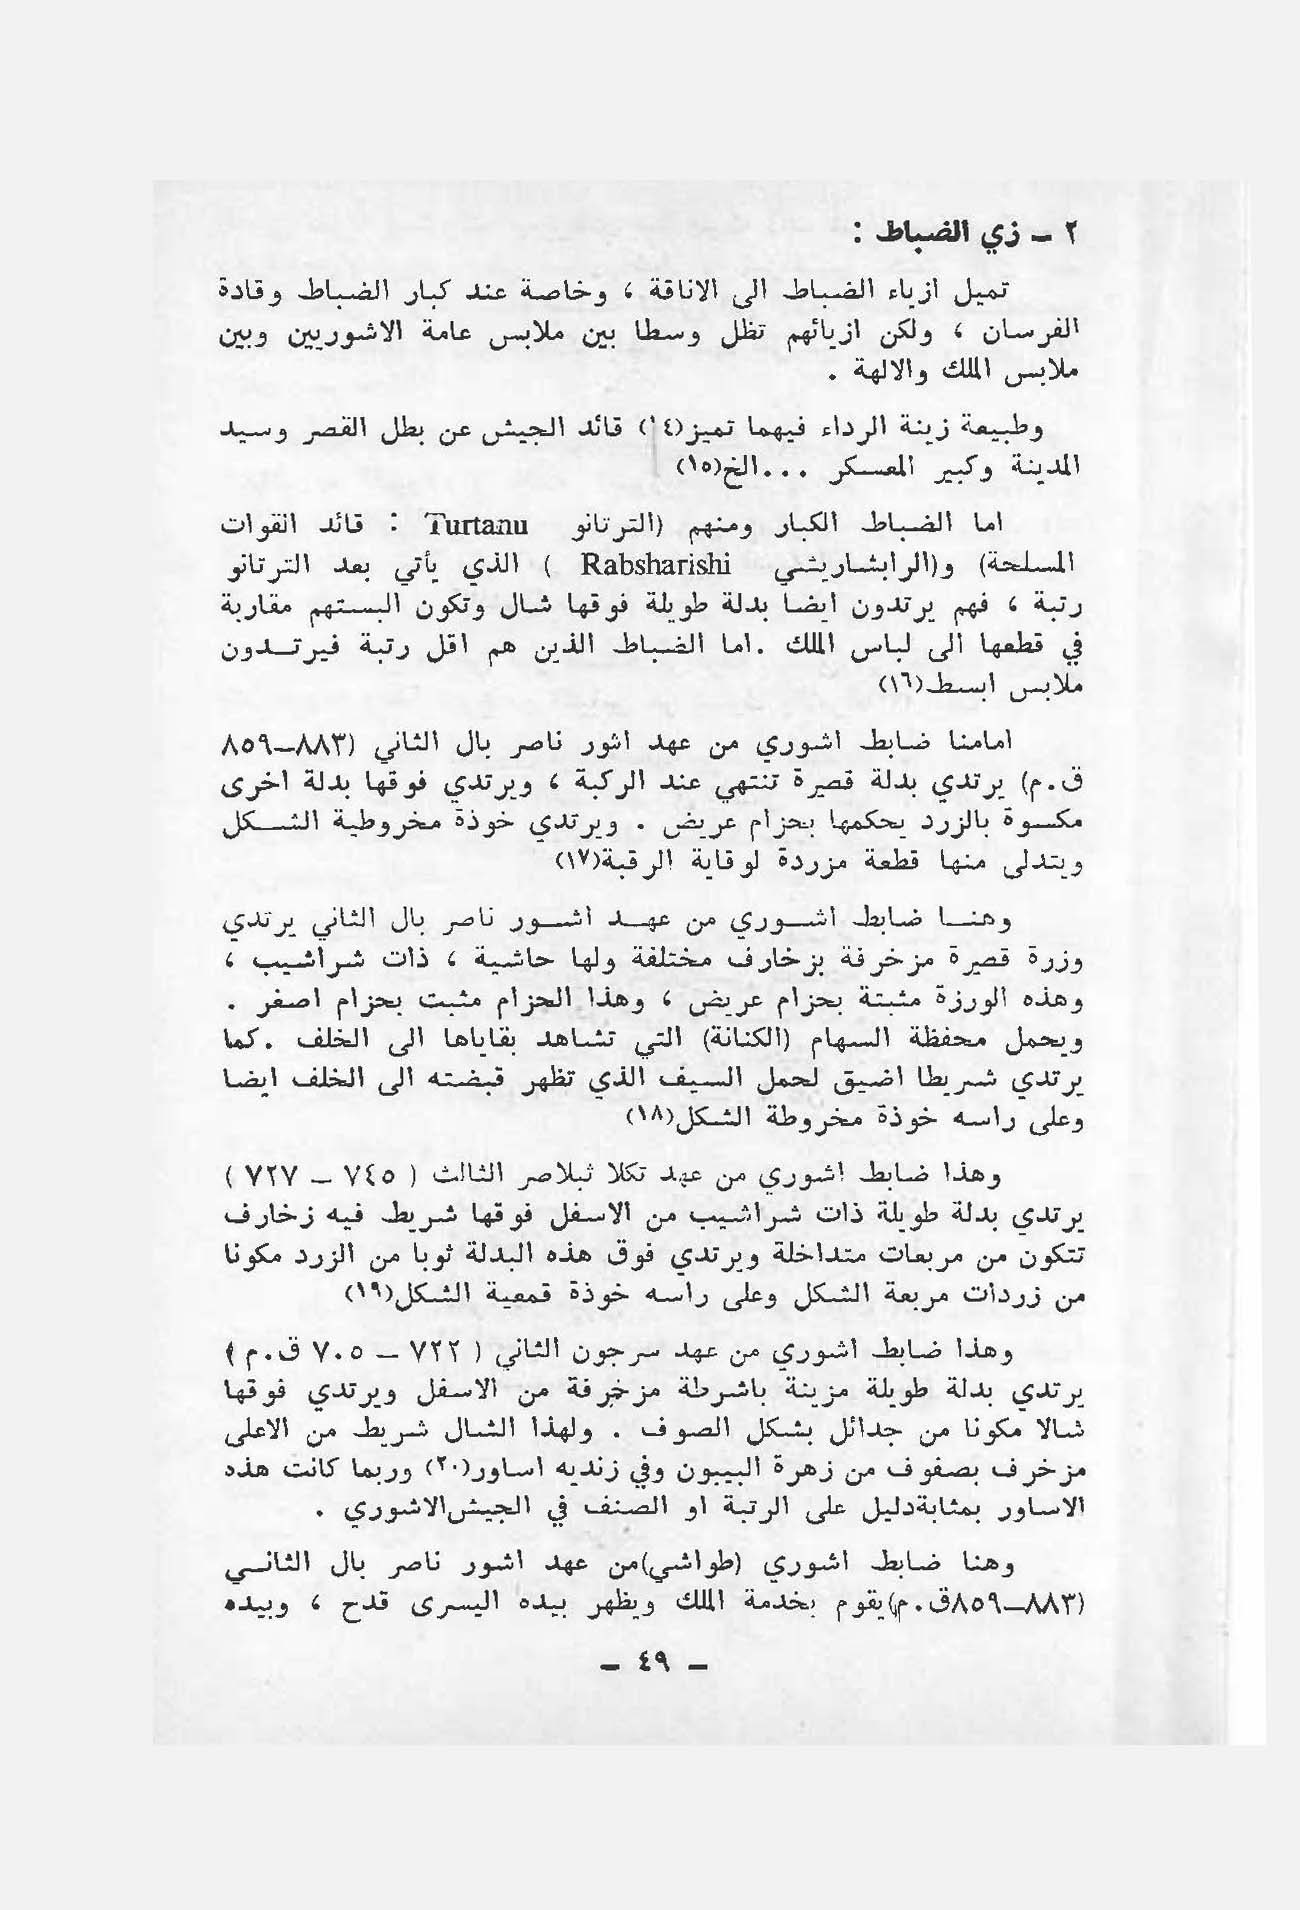 ٢ ــ زي الضباط :
تميل ازياء الضباط الى الاناقة ، وخاصة عند كبار الضباط وقادة
الفرسان ، ولكن ازيائهم تظل وسطا بين ملابس عامة الاشوريين وبين
ملابس الملك والالهة .
وطبيعة زينة الرداء فيهما تميز(١٤) قائد الجيش عن بطل القصر وسيد
المدينة وكبير المعسكر ...الخ(١٥)
اما الضباط الكبار ومنهم (الترتانو Turtanu : قائد القوات
المسلحة) و(الرابشاريشي Rabsharishi ) الذي يأتي بعد الترتانو
رتبة ، فهم يرتدون ايضا بدلة طويلة فوقها شال وتكون البستهم مقاربة
في قطعها الى لباس الملك .اما الضباط الذين هم اقل رتبة فيرتــدون
ملابس ابسط(١٦)
امامنا ضابط اشوري من عهد اشور ناصر بال الثاني (٨٨٣ــ٨٥٩
ق.م) يرتدي بدلة قصيرة تنتهي عند الركبة ، ويرتدي فوقها بدلة اخرى
مكسوة بالزرد يحكمها بحزام عريض . ويرتدي خوذة مخروطية الشــكل
ويتدلى منها قطعة مزردة لوقاية الرقبة(١٧)
وهنــا ضابط اشــوري من عهــد اشــور ناصر بال الثاني يرتدي
وزرة قصيرة مزخرفة بزخارف مختلفة ولها حاشية ، ذات شراشيب ،
وهذه الورزة مثبتة بحزام عريض ، وهذا الحزام مثبت بحزام اصغر .
ويحمل محفظة السهام (الكنانة) التي تشاهد بقاياها الى الخلف .كما
يرتدي شريطا اضيق لحمل السيف الذي تظهر قبضته الى الخلف ايضا
وعلى راسه خوذة مخروطة الشكل(١٨)
وهذا ضابط اشوري من عهد تكلا ثبلاصر الثالث ( ٧٤٥ ــ ٧٢٧ )
يرتدي بدلة طويلة ذات شراشيب من الاسفل فوقها شريط فيه زخارف
تتكون من مربعات متداخلة ويرتدي فوق هذه البدلة ثوبا من الزرد مكونا
من زردات مربعة الشكل وعلى راسه خوذة قمعية الشكل(١٩)
وهذا ضابط اشوري من عهد سرجون الثاني ( ٧٢٢ ــ ٧٠٥ ق.م )
يرتدي بدلة طويلة مزينة باشرطة مزخرفة من الاسفل ويرتدي فوقها
شالا مكونا من جدائل بشكل الصوف . ولهذا الشال شريط من الاعلى
مزخرف بصفوف من زهرة البيبون وفي زنديه اساور(٢٠) وربما كانت هذه
الاساور بمثابةدليل على الرتبة او الصنف في الجيشالاشوري .
وهنا ضابط اشوري (طواشي)من عهد اشور ناصر بال الثانــي
(٨٨٣ــ٨٥٩ق.م)يقوم بخدمة الملك ويظهر بيده اليسرى قدح ، وبيده
ــ ٤٩ ــ